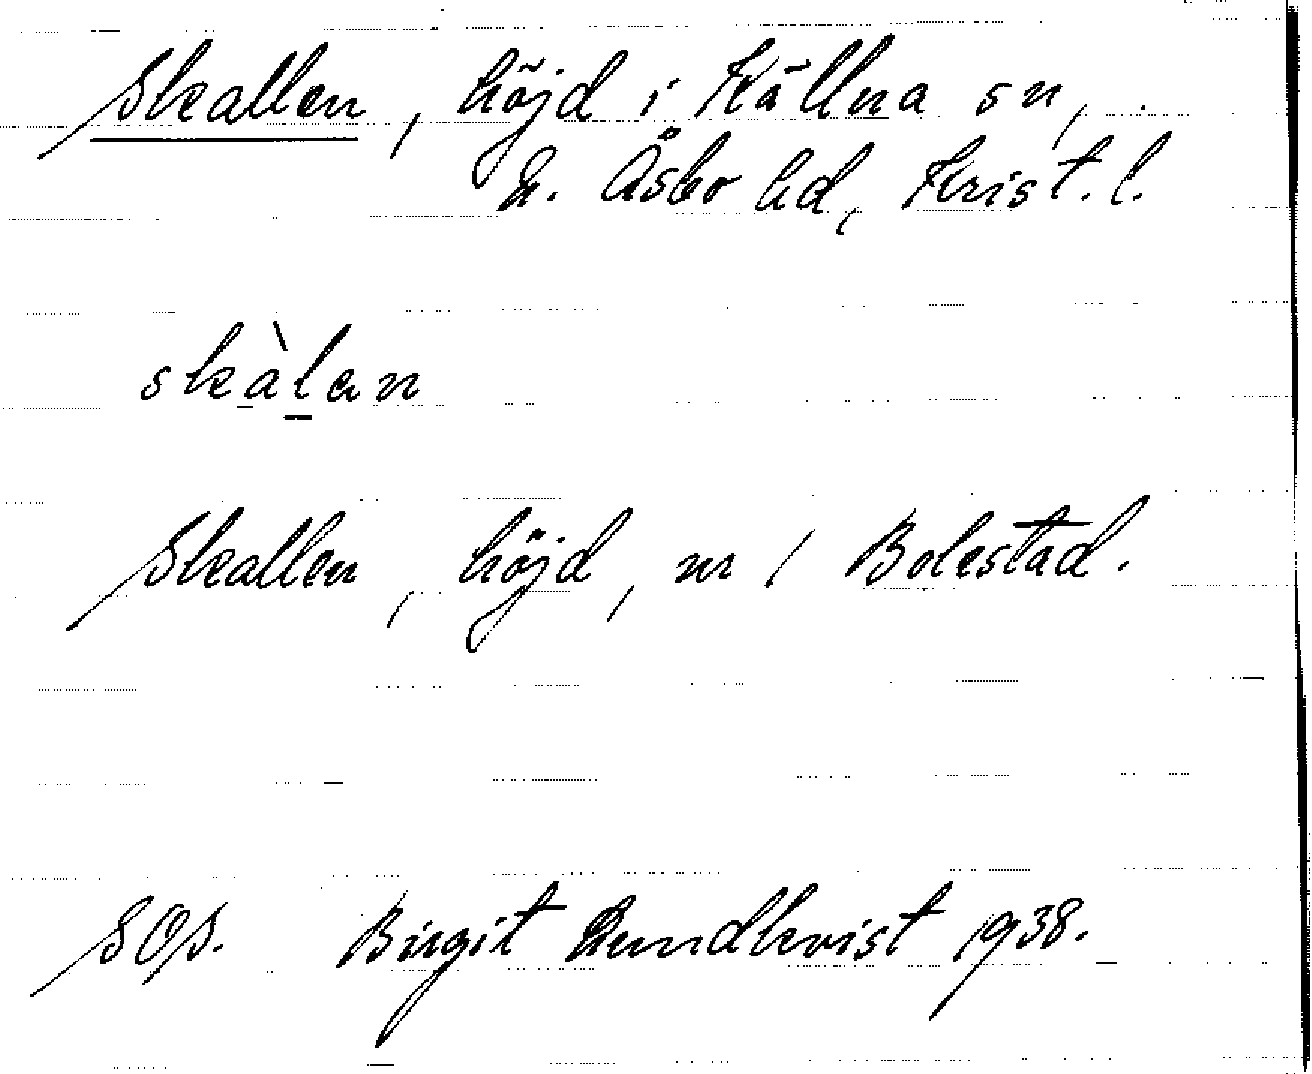 Skallen, höjd i Källna sn,
N. Åsbo hd, Krist. l.
skàlan
Skallen, höjd, nr / Bolestad.
SOS. Birgit Lundkvist 1938.